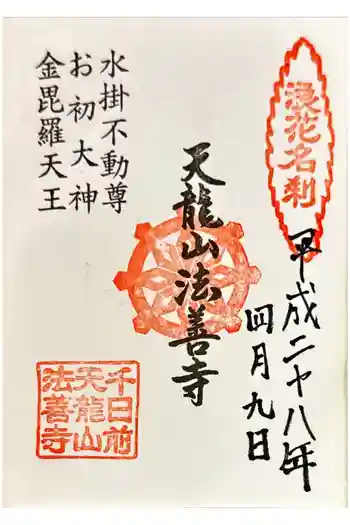 浪花名刹
平成二十八年
四月九日
天龍山法善寺
水掛不動尊
お初大神
金毘羅天王
千日前
天龍山
法善寺